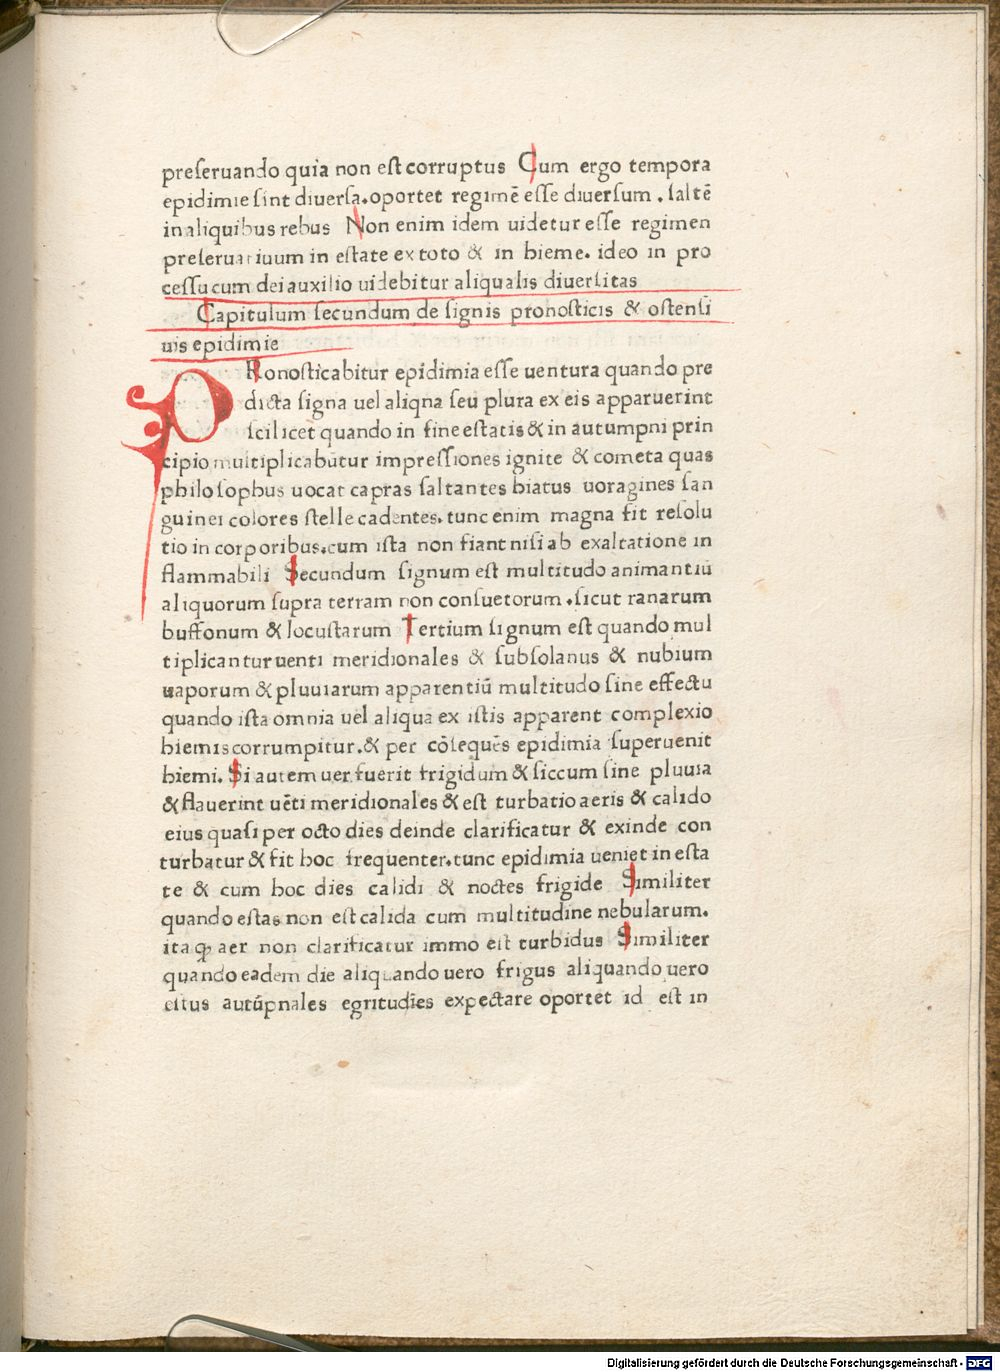 preſeruando quia non eſt corruptus Cum ergo tempora
epidimie ſint diuerſa. oportet regimē eſſe diuerſum . ſaltē
in aliquibus rebus Non enim idem uidetur eſſe regimen
preſeruatiuum in eſtate ex toto & in hieme. ideo in pro
ceſſu cum dei auxilio uidebitur aliqualis diuerſitas
Capitulum ſecundum de ſignis pronoſticis & oſtenſi
uis epidimie
PRonoſticabitur epidimia eſſe uentura quando pre
dicta ſigna uel aliqna ſeu plura ex eis apparuerint
ſcilicet quando in fine eſtatis & in autumpni prin
cipio multiplicabūtur impreſſiones ignite & cometa quas
philoſophus uocat capras ſaltantes hiatus uoragines ſan
guinei colores ſtelle cadentes. tunc enim magna fit reſolu
tio in corporibus. cum iſta non fiant niſi ab exaltatione in
flammabili Secundum ſignum eſt multitudo animantiū
aliquorum ſupra terram non conſuetorum . ſicut ranarum
buffonum & locuſtarum Tertium ſignum eſt quando mul
tiplicantur uenti meridionales & ſubſolanus & nubium
uaporum & pluuiarum apparentiū multitudo ſine effectu
quando iſta omnia uel aliqua ex iſtis apparent complexio
hiemis corrumpitur. & per cōſequēs epidimia ſuperuenit
hiemi. Si autem uer fuerit frigidum & ſiccum ſine pluuia
& flauerint uēti meridionales & eſt turbatio aeris & calido
eius quaſi per octo dies deinde clarificatur & exinde con
turbatur & fit hoc frequenter. tunc epidimia ueniet in eſta
te & cum hoc dies calidi & noctes frigide Similiter
quando eſtas non eſt calida cum multitudine nebularum.
ita ꝙ aer non clarificatur immo eſt turbidus Similiter
quando eadem die aliquando uero frigus aliquando uero
eſtus autūpnales egritudīes expectare oportet id eſt in
Digitalisierung gefördert durch die Deutsche Forschungsgemeinschaft - DFG